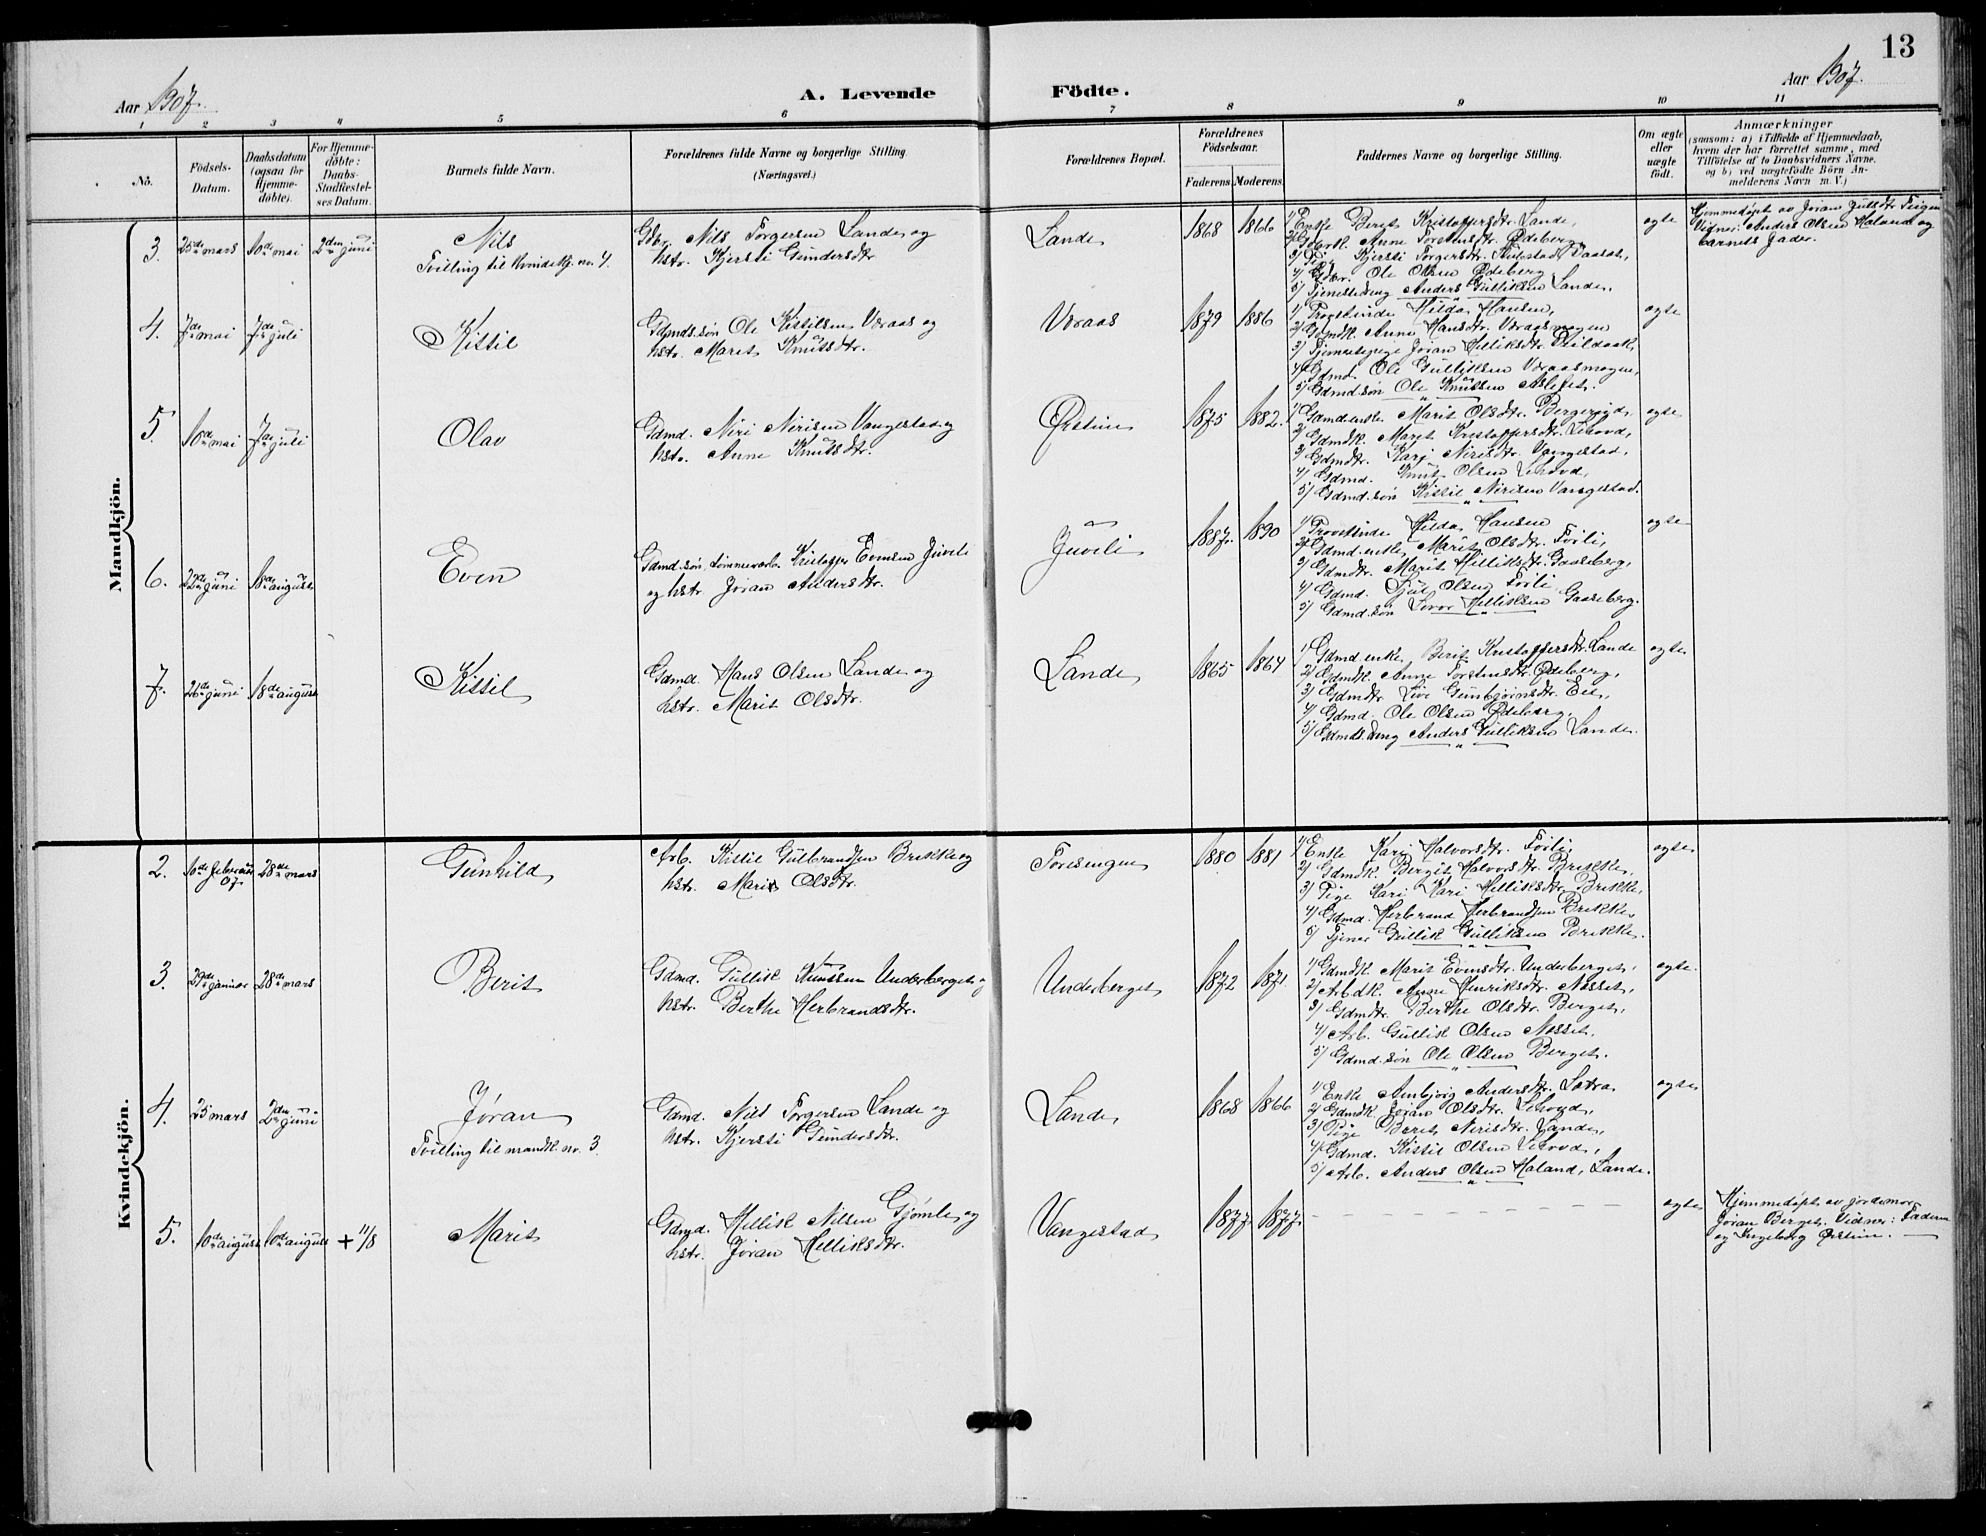 13
Aar 1907.
A. Levende Födte.
Aar 1907.
1 2 3 4 5 6 7 8 9 10 11
No.
Födsels-
Datum.
Daabsdatum
(ogsaa for
Hjemme-
döbte).
For Hjemme-
döbte:
Daabs-
Stadfæstel-
ses Datum.
Barnets fulde Navn.
Forældrenes fulde Navne og borgerlige Stilling.
(Næringsvei.)
Forældrenes Bopæl.
Forældrenes
Födselsaar.
Faderens. Moderens.
Faddernes Navne og borgerlige Stilling.
Om ægte
eller
uægte
födt.
Anmærkninger
(saasom: a) i Tilfælde af Hjemmedaab,
hvem der har forrettet samme, med
Tilföielse af to Daabsvidners Navne,
og b) ved uægtefödte Börn An-
melderens Navn m. V.)
Mandkjön.
3. 25de mars 10de mai 2den juni
Nils
Tvilling til kvindekj. no. 4.
Gdbr. Nils Torgersen Lande og
hstr. Kjersti Gundersdtr.
Lande 1868 1866
1/ Enke Berit Kristoffersdtr. Lande,
2/ Gdbrk. Anne Torstensdtr. Ødeberg,
3/ Pige Kjersti Torgersdtr.
4/ Gdbr. Ole Olsen Ødeberg
5/ Tjenestedreng Anders Gulliksen Lande.
egte
Hjemmedøpt av Jøran Julsdtr. Teigen
Vidner: Anders Olsen Haland og
barnets fader.
4. 7de mai 7de juli
Kittil
Gdmds.søn Ole Kittilsen Vøraas og
hstr. Marit Knutsdtr.
Vøraas 1879 1886
1/ Provstinde Hilda Hansen,
2/ Gdmdk. Anne Hansdtr. Vøraasmogen
3/ Tjenestepige Jøran Helliksdtr.
4/ Gdmd. Ole Gulliksen Vøraasmogen,
5/ Gdmd.søn Ole Knutsen Aslefet.
egte
5. 10de mai 7de juli
Olav
Gdmd. Niri Nirisen Vangestad og
hstr. Anne Knutsdtr.
Ørstein 1875 1882.
1/ Gdmd.enke Marit Olsdtr. Bergerud,
2/ Gdmdk. Marit Kristoffersdtr. Lehovd,
3/ Gdmdtr. Kari Nirisdtr. Vangestad,
4/ Gdmd. Knut Olsen Lehovd,
5/ Gdmd.søn Kittil Nirisen Vangestad.
egte
6. 22de juni 18de august
Even
Gdmd.søn tømmerarb. Kristoffer Evensen Juveli
og hstr. Jøran Andersdtr.
Juveli 1887. 1890
1/ Provstinde Hilda Hansen
2/ Gdmd.enke Marit Olsdtr. Foili,
3/ Gdmdtr. Marit Helliksdtr. Gaaseberg,
4/ Gdmd. Juel Olsen Foili
5/ Gdmd.søn Levor Helliksen Gaaseberg.
egte
7. 26de juni 18de august
Kittil
Gdmd. Hans Olsen Lande og
hstr. Marit Olsdtr.
Lande 1865 1864
1/ Gdmd.enke Berit Kristoffersdtr. Lande
2/ Gdmdk. Anne Torstensdtr. Ødeberg,
3/ Gdmdtr. Live Gunbjørnsdtr. Eie,
4/ Gdmd. Ole Olsen Ødeberg,
5/ Gdmds.dreng Anders Gulliksen Lande.
egte
Kvindekjön.
2. 10de februar 07. 28de mars
Gunhild
Arb. Kittil Gulbrandsen Brekke og
hstr. Marit Olsdtr.
Foresengen 1880 1881
1/ Enke Kari Halvorsdtr. Foili
2/ Gdmdk. Bergit Halvorsdtr. Brekke,
3/ Pige Kari Helliksdtr. Brekke,
4/ Gdmd. Herbrand Herbrandsen Brekke,
5/ Tjener Gullik Gulliksen Brekke.
egte
3. 29de januar 28de mars
Berit
Gdmd. Gullik Knutsen Underberget og
hstr. Berthe Herbrandsdtr.
Underberget 1872 1871.
1/ Gdmdk. Marit Evensdtr. Underberget,
2/ Arbdk. Anne Henriksdtr. Nesset,
3/ Gdmdtr. Berthe Olsdtr. Berget,
4/ Arb. Gullik Olsen Nesset,
5/ Gdmd.søn Ole Olsen Berget.
egte.
4. 25 mars 2den juni
Jøran
Tvilling til mandk. no. 3.
Gdmd. Nils Torgersen Lande og
hstr. Kjersti Gundersdtr.
Lande 1868 1866
1/ Enke Anbjørg Andersdtr. Sætra
2/ Gdmdk. Jøran Olsdtr. Lehovd,
3/ Pige Berit Nirisdtr. Lande,
4/ Gdmd. Kittil Olsen Lehovd,
5/ Arb. Anders Olsen Haland, Lande.
egte
5. 10de august 10de august + 11/8
Marit
Gdmd. Hellik Nilsen Gjømle og
hstr. Jøran Helliksdtr.
Vangestad 1877. 1877.
egte
Hjemmedøpt av jordemor
Jøran Berget. Vidner: Faderen
og Ingeborg Ørstein.